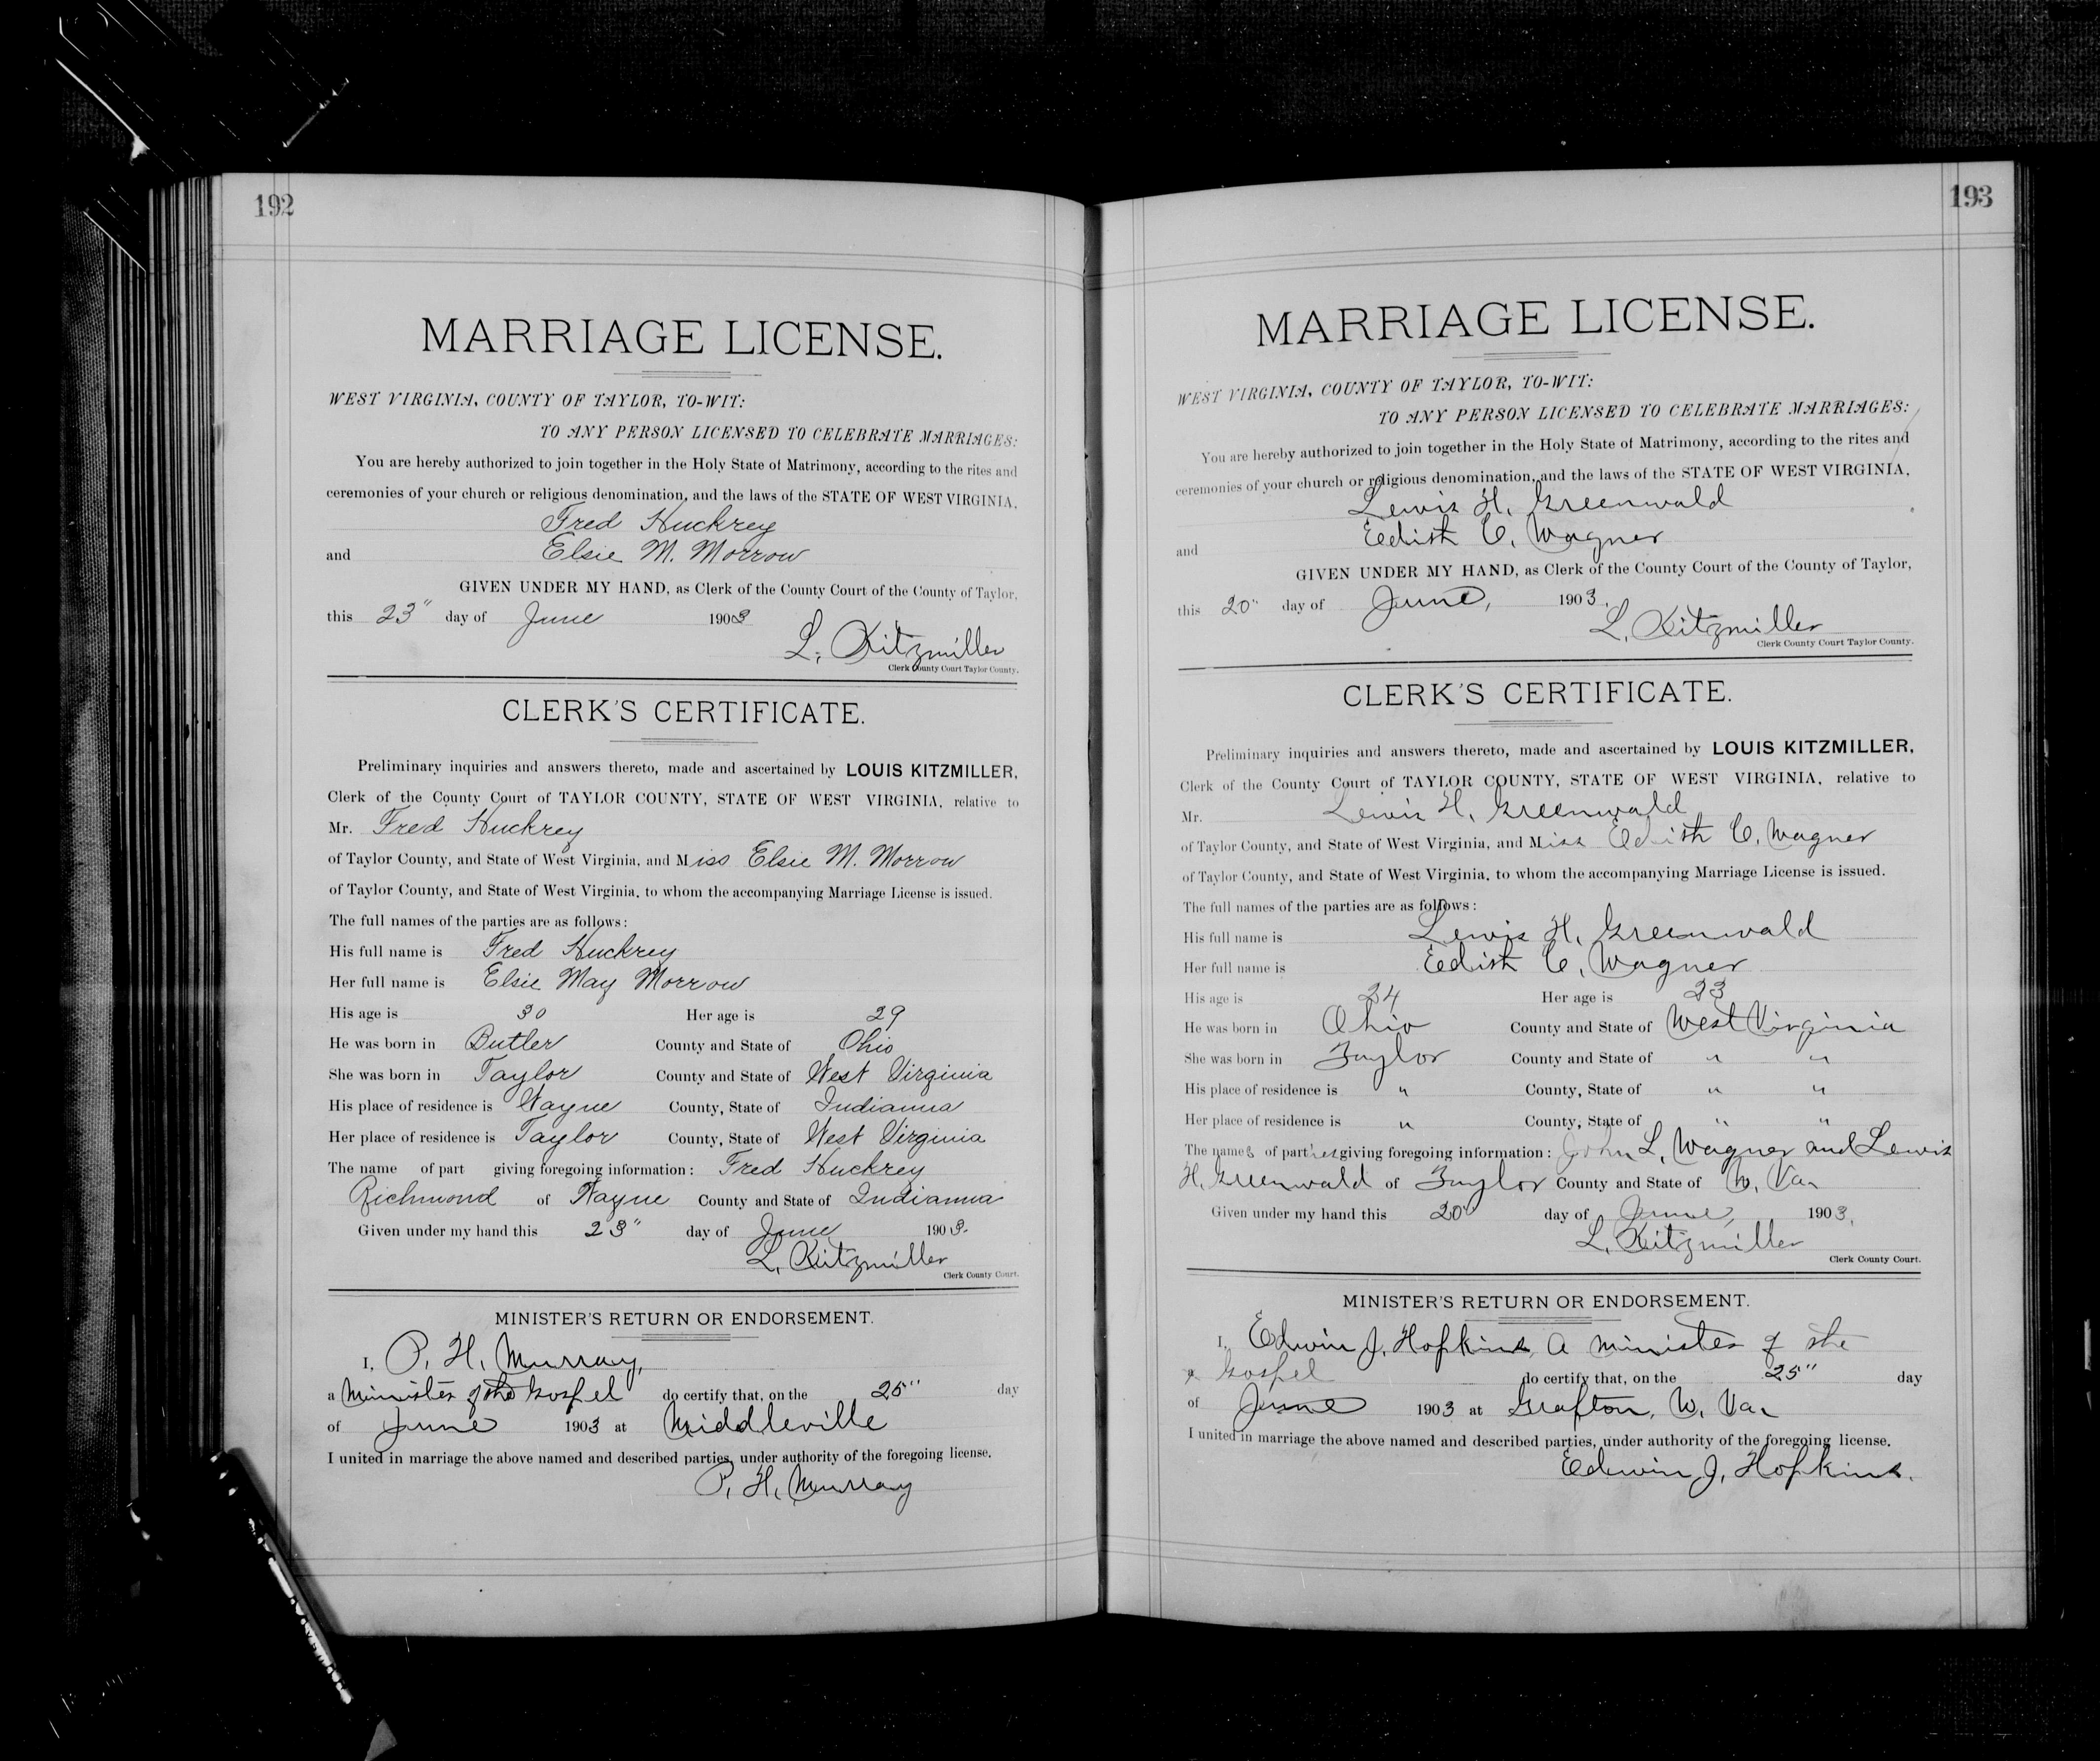 192
MARRIAGE LICENSE.
WEST VIRGINIA, COUNTY OF TAYLOR, TO-WIT:
TO ANY PERSON LICENSED TO CELEBRATE MARRIAGES:
You are hereby authorized to join together in the Holy State of Matrimony, according to the rites and
ceremonies of your church or religious denomination, and the laws of the STATE OF WEST VIRGINIA,
Fred Huckrey
and Elsie M. Morrow
GIVEN UNDER MY HAND, as Clerk of the County Court of the County of Taylor,
this 23" day of June 1903
L. Kitzmiller
Clerk County Court Taylor County.
CLERK'S CERTIFICATE.
Preliminary inquiries and answers thereto, made and ascertained by LOUIS KITZMILLER,
Clerk of the County Court of TAYLOR COUNTY, STATE OF WEST VIRGINIA, relative to
Mr. Fred Huckrey
of Taylor County, and State of West Virginia, and Miss Elsie M. Morrow
of Taylor County, and State of West Virginia, to whom the accompanying Marriage License is issued.
The full names of the parties are as follows:
His full name is Fred Huckrey
Her full name is Elsie May Morrow
His age is 30 Her age is 29
He was born in Butler County and State of Ohio
She was born in Taylor County and State of West Virginia
His place of residence is Wayne County, State of Indianna
Her place of residence is Taylor County, State of West Virginia
The name of part giving foregoing information: Fred Huckrey
Richmond of Wayne County and State of Indianna
Given under my hand this 23" day of June 1903.
L. Kitzmiller
Clerk County Court.
MINISTER'S RETURN OR ENDORSEMENT.
I, P. H. Murray,
a Minister of the Gospel do certify that, on the 25" day
of June 1903 at Middleville
I united in marriage the above named and described parties, under authority of the foregoing license.
P. H. Murray
193
MARRIAGE LICENSE.
WEST VIRGINIA, COUNTY OF TAYLOR, TO-WIT:
TO ANY PERSON LICENSED TO CELEBRATE MARRIAGES:
You are hereby authorized to join together in the Holy State of Matrimony, according to the rites and
ceremonies of your church or religious denomination, and the laws of the STATE OF WEST VIRGINIA,
Lewis H. Greenwald
and Edith C. Wagner
GIVEN UNDER MY HAND, as Clerk of the County Court of the County of Taylor,
this 20" day of June, 1903.
L. Kitzmiller
Clerk County Court Taylor County.
CLERK'S CERTIFICATE.
Preliminary inquiries and answers thereto, made and ascertained by LOUIS KITZMILLER,
Clerk of the County Court of TAYLOR COUNTY, STATE OF WEST VIRGINIA, relative to
Mr. Lewis H. Greenwald
of Taylor County, and State of West Virginia, and Miss Edith C. Wagner
of Taylor County, and State of West Virginia, to whom the accompanying Marriage License is issued.
The full names of the parties are as follows:
His full name is Lewis H. Greenwald
Her full name is Edith C. Wagner
His age is 24 Her age is 23
He was born in Ohio County and State of West Virginia
She was born in Taylor County and State of " "
His place of residence is " County, State of " "
Her place of residence is " County, State of " "
The names of parties giving foregoing information: John L. Wagner and Lewis
H. Greenwald of Taylor County and State of W. Va.
Given under my hand this 20" day of June, 1903.
L. Kitzmiller
Clerk County Court.
MINISTER'S RETURN OR ENDORSEMENT.
I, Edwin J. Hopkins, a minister of the
a Gospel do certify that, on the 25" day
of June 1903 at Grafton, W. Va.
I united in marriage the above named and described parties, under authority of the foregoing license.
Edwin J. Hopkins.